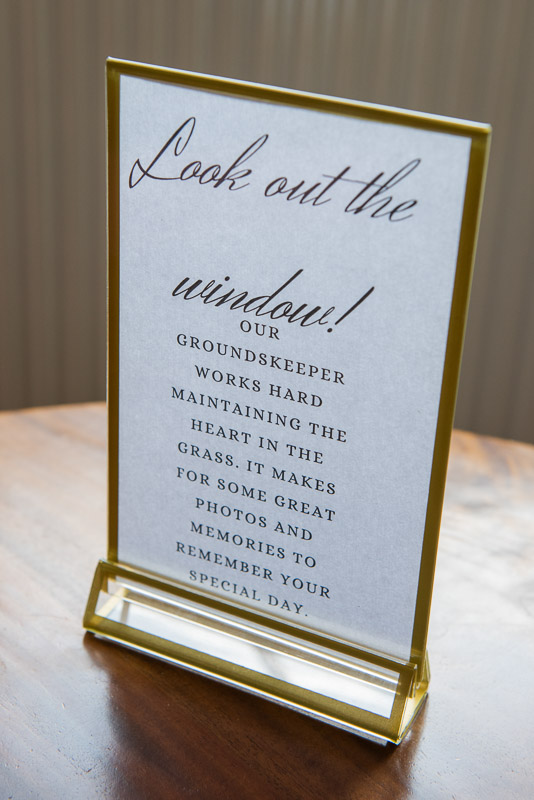 Look out the
window!
OUR
GROUNDSKEEPER
WORKS HARD
MAINTAINING THE
HEART IN THE
GRASS. IT MAKES
FOR SOME GREAT
PHOTOS AND
MEMORIES TO
REMEMBER YOUR
SPECIAL DAY.